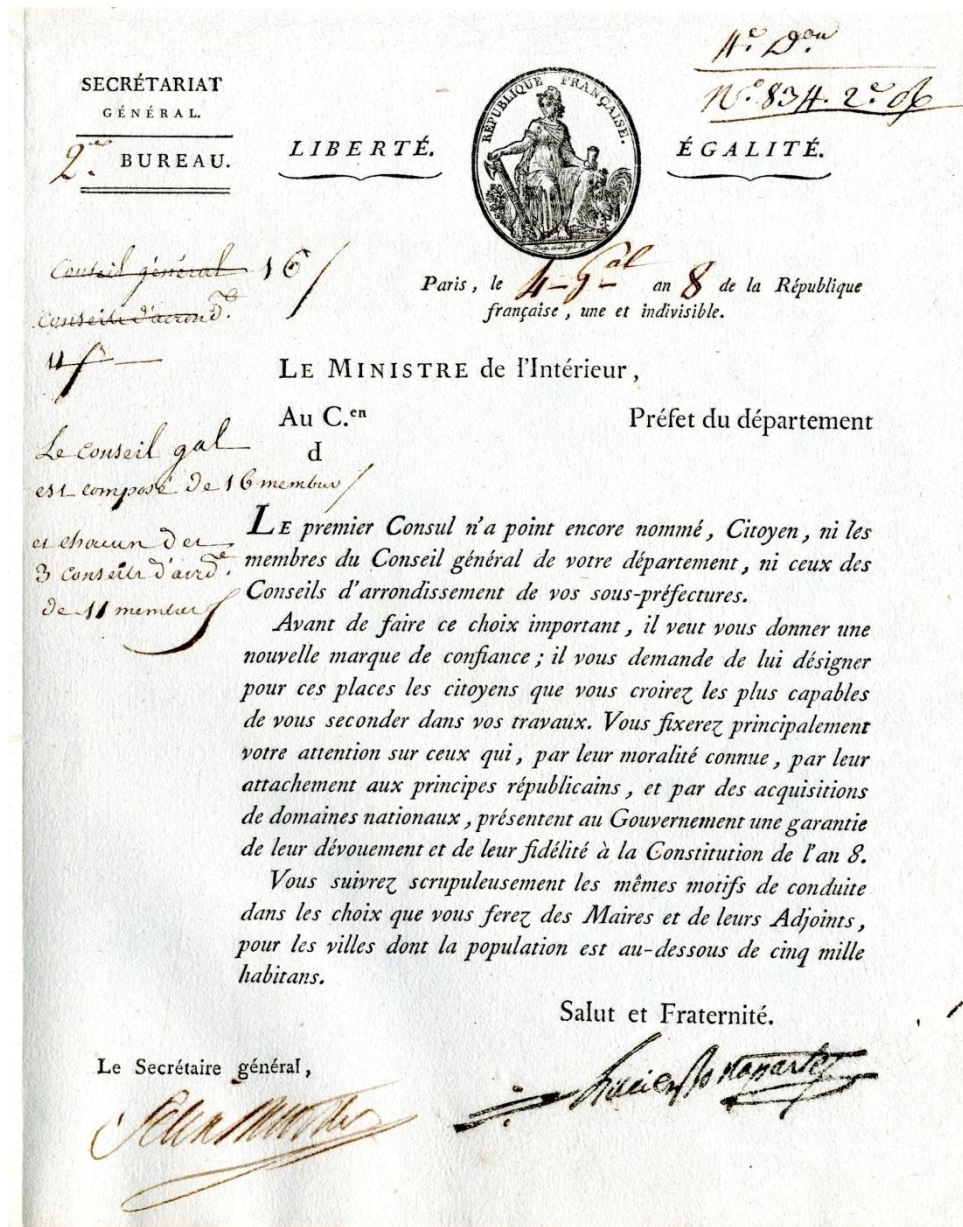 4.e D.on
N.o 834. 2.e
SECRÉTARIAT
GÉNÉRAL.
2.e BUREAU.
LIBERTÉ.
RÉPUBLIQUE FRANÇAISE.
ÉGALITÉ.
Conseil général 16
Conseils d'arrond.
11
Paris, le 4 G.al an 8 de la République
française, une et indivisible.
LE MINISTRE de l'Intérieur,
Au C.en Préfet du département
d
Le conseil gal
est composé de 16 membres
et chacun des
3 conseils d'arrd.
de 11 membres
LE premier Consul n'a point encore nommé, Citoyen, ni les
membres du Conseil général de votre département, ni ceux des
Conseils d'arrondissement de vos sous-préfectures.
Avant de faire ce choix important, il veut vous donner une
nouvelle marque de confiance; il vous demande de lui désigner
pour ces places les citoyens que vous croirez les plus capables
de vous seconder dans vos travaux. Vous fixerez principalement
votre attention sur ceux qui, par leur moralité connue, par leur
attachement aux principes républicains, et par des acquisitions
de domaines nationaux, présentent au Gouvernement une garantie
de leur dévouement et de leur fidélité à la Constitution de l'an 8.
Vous suivrez scrupuleusement les mêmes motifs de conduite
dans les choix que vous ferez des Maires et de leurs Adjoints,
pour les villes dont la population est au-dessous de cinq mille
habitans.
Salut et Fraternité.
Le Secrétaire général,
Lucien Bonaparte